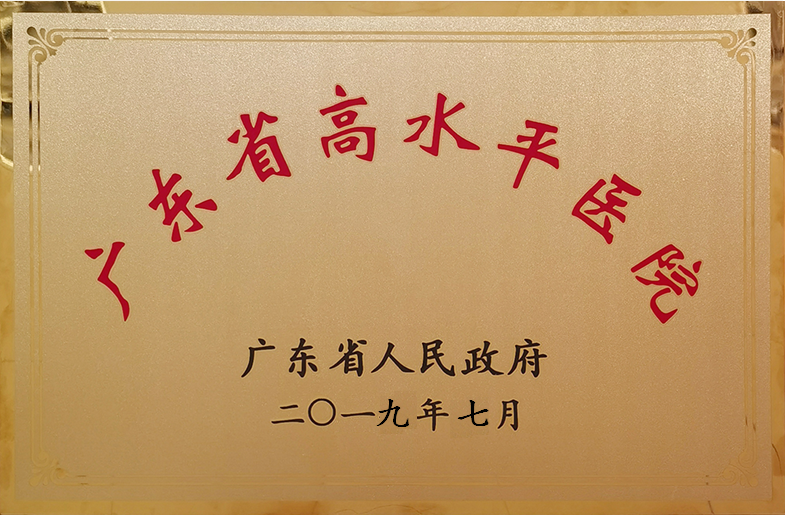 广东省高水平医院
广东省人民政府
二〇一九年七月